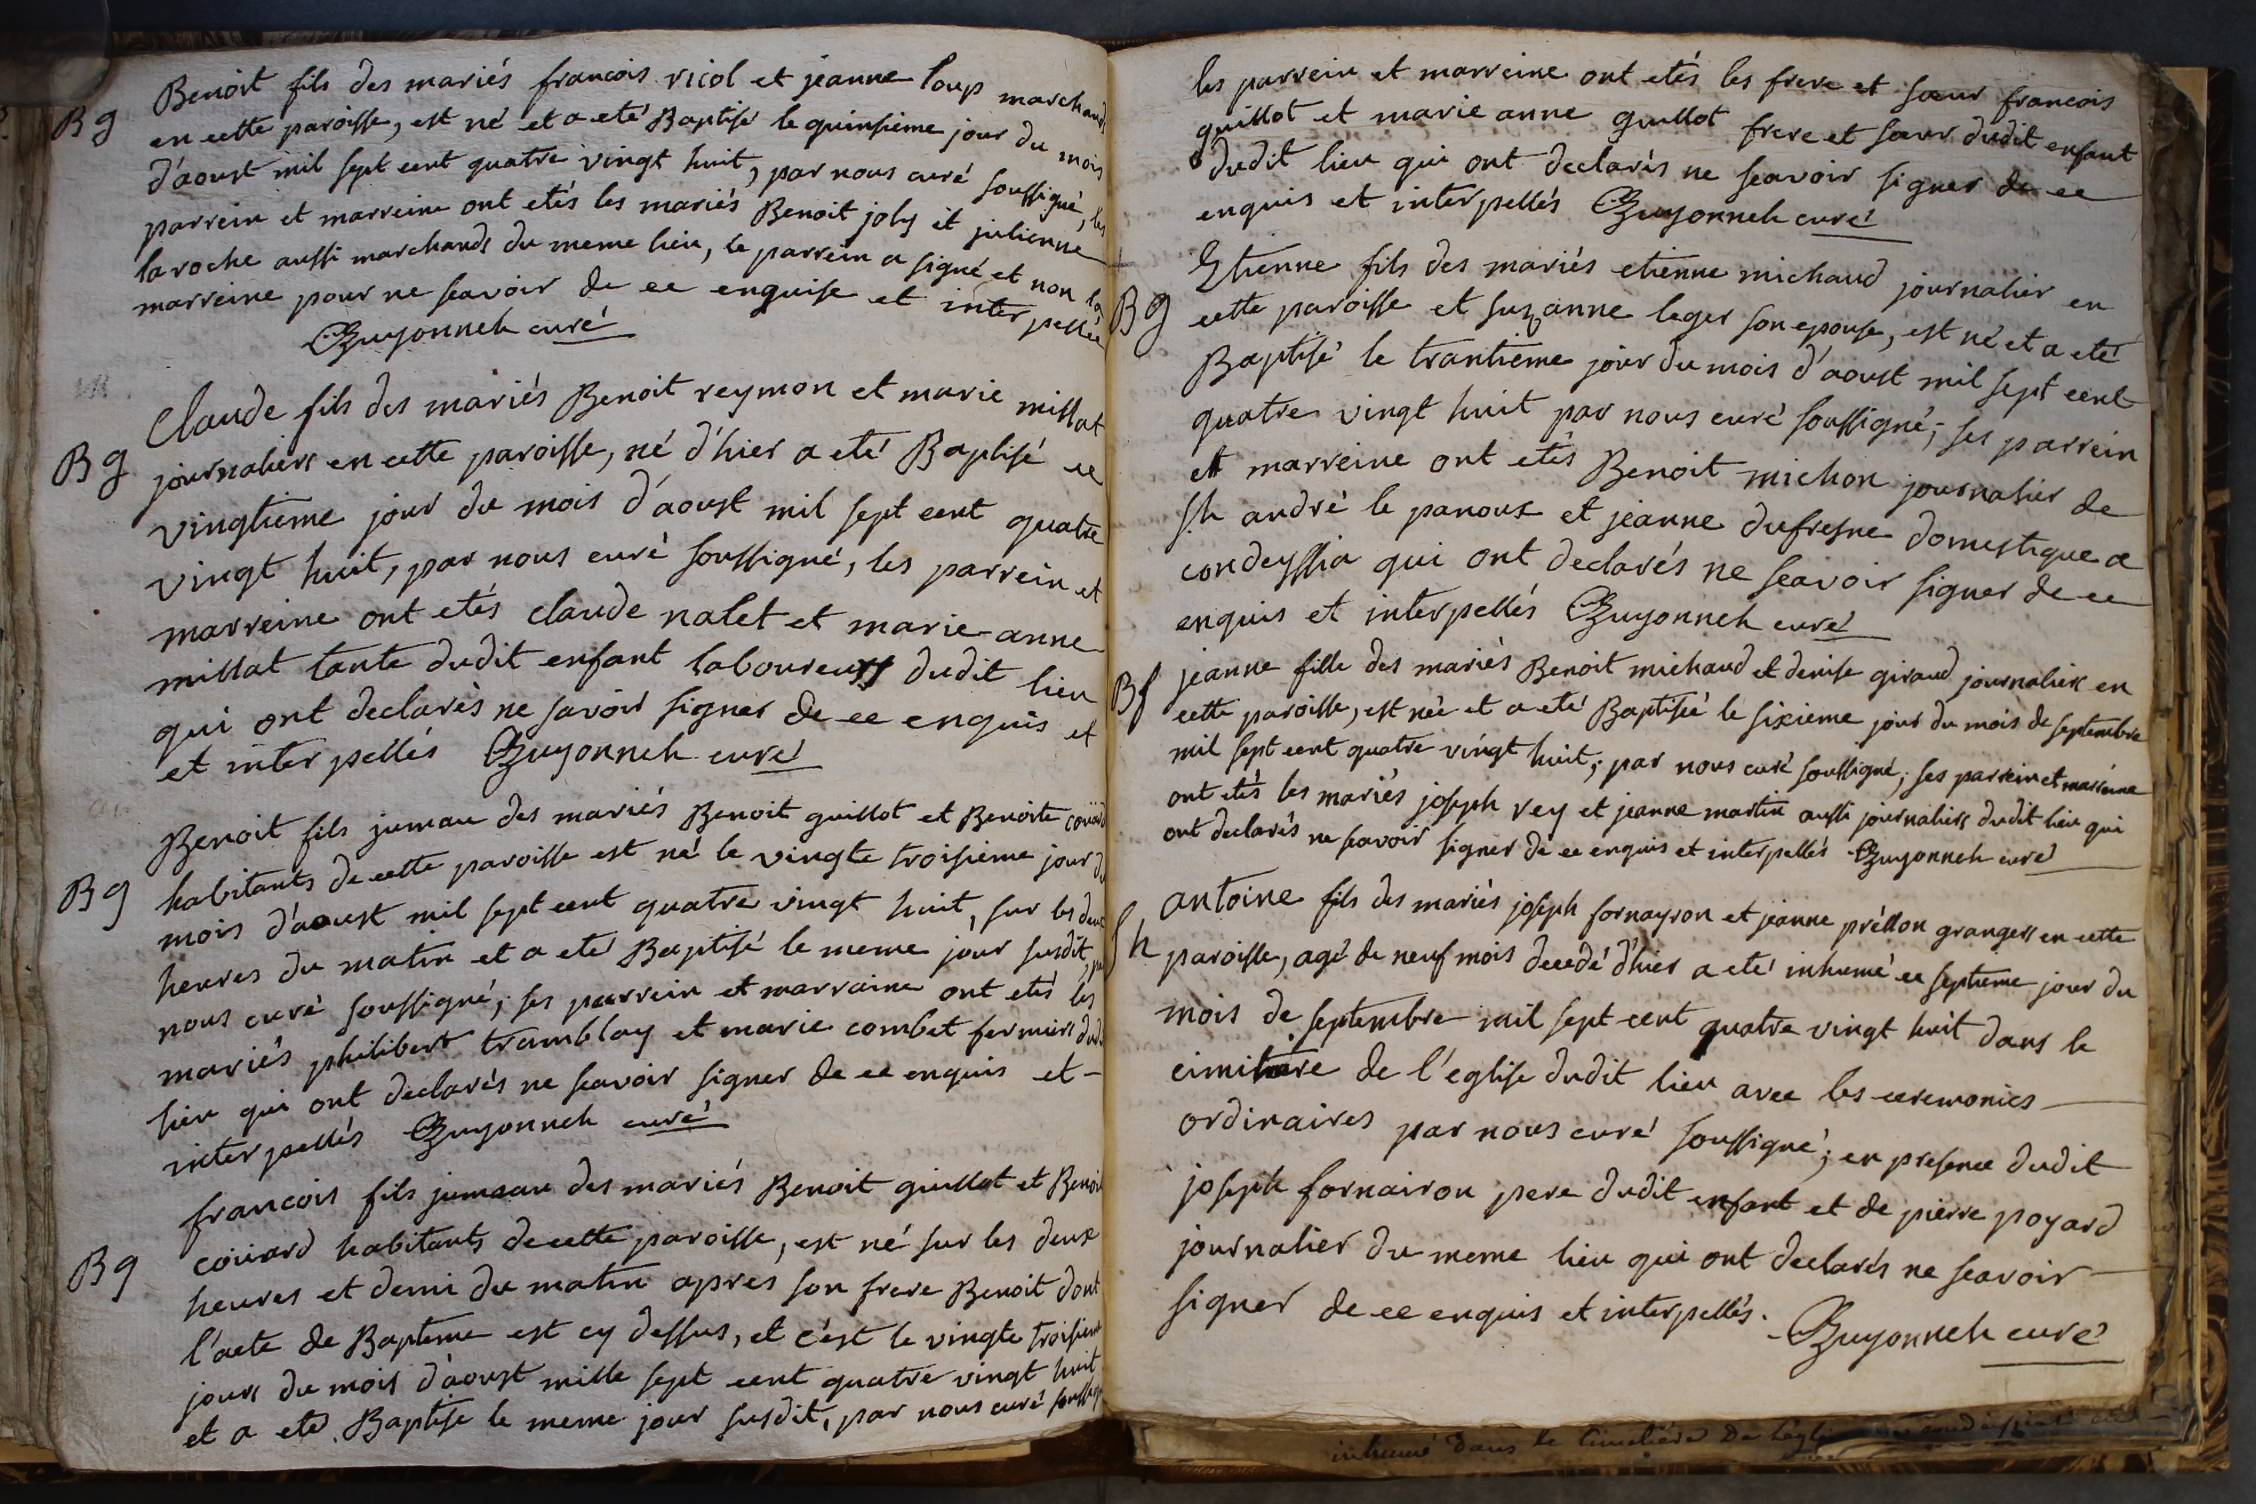 Benoit fils des mariés francois ricol et jeanne loup marchands
Bg en cette paroisse, est né et a eté Baptisé le quinsième jour du mois
d'aoust mil sept cent quatre vingt huit, par nous curé soussigné, les
parrein et marreine ont etés les mariés Benoit joly et julienne
la roche aussi marchands du meme lieu, le parrein a signé et non la
marreine pour ne scavoir de ce enquise et interpellée
Guyonneh curé
Claude fils des mariés Benoit reymon et marie millat
Bg journaliers en cette paroisse, né d'hier a eté Baptisé ce
vingtieme jour du mois d'aoust mil sept cent quatre
vingt huit, par nous curé soussigné, les parrein et
marreine ont etés claude nalet et marie anne
millat tante dudit enfant laboureurs dudit lieu
qui ont declarés ne savoir signer de ce enquis et
et interpellés Guyonneh curé
Benoit fils jumau des mariés Benoit guillot et Benoite coüard
Bg habitants de cette paroisse est né le vingte troisieme jour du
mois d'aoust mil sept cent quatre vingt huit, sur les deux
heures du matin et a eté Baptisé le meme jour susdit, par
nous curé soussigné; ses parrein et marraine ont etés les
mariés philibert tramblay et marie combet fermiers dudit
lieu qui ont declarés ne scavoir signer de ce enquis et
interpellés Guyonneh curé
francois fils jumeau des mariés Benoit guillot et Benoite
Bg coüard habitants de cette paroisse, est né sur les deux
heures et demi du matin apres son frere Benoit dont
l'acte de Bapteme est cy dessus, et c'est le vingte troisieme
jours du mois d'aoust mille sept cent quatre vingt huit
et a eté Baptise le meme jour susdit, par nous curé soussigné
les parrein et marreine ont etés les frere et sœur francois
guillot et marie anne guillot frere et sœur dudit enfant
dudit lieu qui ont declarés ne scavoir signer de ce
enquis et interpellés Guyonneh curé
Etienne fils des mariés etienne michaud journalier en
Bg cette paroisse et suzanne leger son epouse, est né et a eté
Baptisé le trantieme jour du mois d'aoust mil sept cent
quatre vingt huit par nous curé soussigné; ses parrein
et marreine ont etés Benoit michon journalier de
st andré le panoux et jeanne dufresne domestique a
condeyssia qui ont declarés ne scavoir signer de ce
enquis et interpellés Guyonneh curé
Bf jeanne fille des mariés Benoit michaud et denise giraud journaliers en
cette paroisse, est née et a eté Baptisée le sixieme jour du mois de septembre
mil sept cent quatre vingt huit; par nous curé soussigné; ses parrein et marreine
ont etés les mariés joseph rey et jeanne martin aussi journaliers dudit lieu qui
ont declarés ne scavoir signer de ce enquis et interpellés Guyonneh curé
antoine fils des mariés joseph fornayron et jeanne prellon grangers en cette
Sh paroisse, agé de neuf mois decedé d'hier a eté inhumé ce septieme jour du
mois de septembre mil sept cent quatre vingt huit dans le
cimitiere de l'eglise dudit lieu avec les ceremonies
ordinaires par nous curé soussigné; en presence dudit
joseph fornairon pere dudit enfant et de pierre poyard
journalier du meme lieu qui ont declarés ne scavoir
signer de ce enquis et interpellés. Guyonneh curé
inhumé dans le Cimetiere De l'eglise